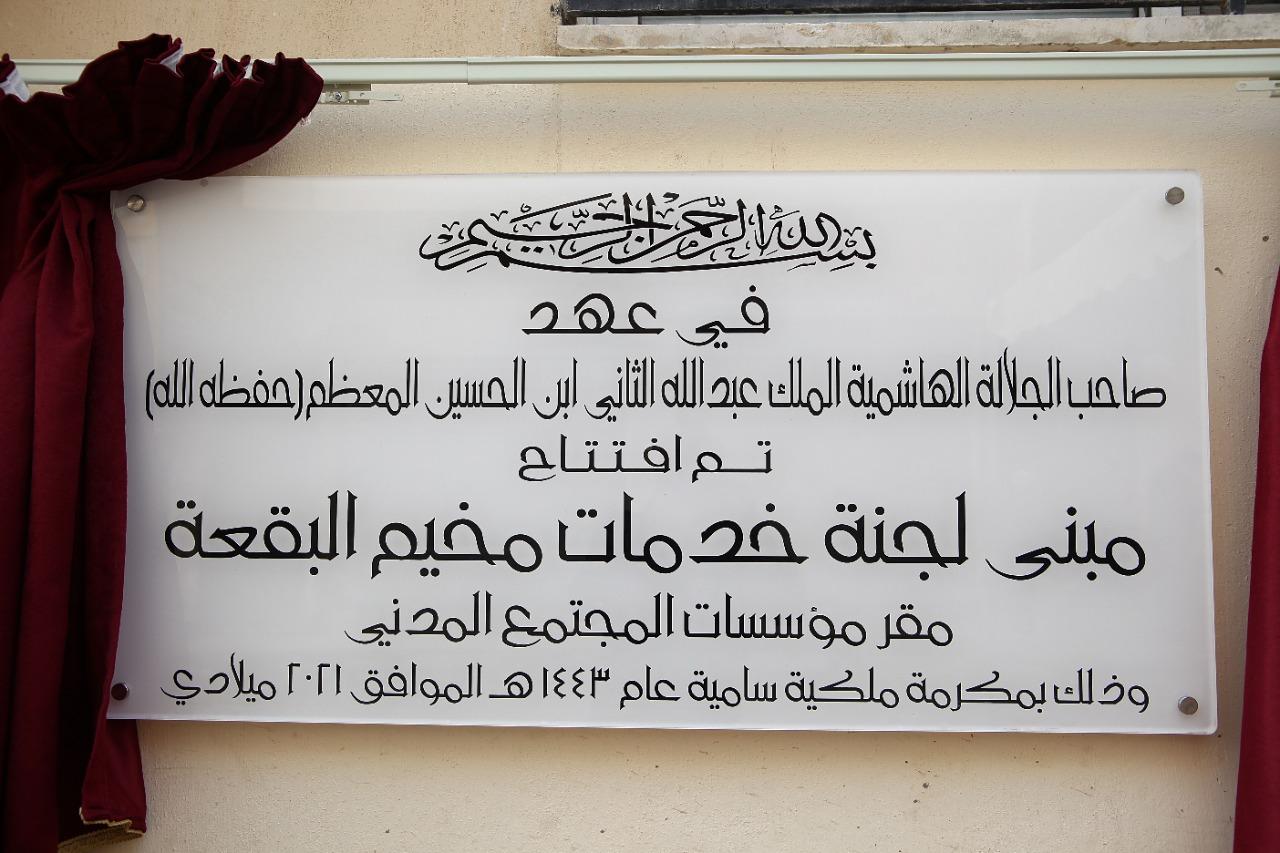 بسم الله الرحمن الرحيم
في عهد
صاحب الجلالة الهاشمية الملك عبدالله الثاني ابن الحسين المعظم (حفظه الله)
تم افتتاح
مبنى لجنة خدمات مخيم البقعة
مقر مؤسسات المجتمع المدني
وذلك بمكرمة ملكية سامية عام ١٤٤٣ هـ الموافق ٢٠٢١ ميلادي